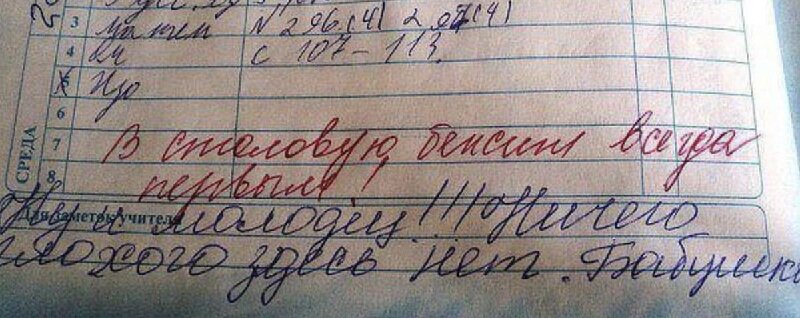 3 матем N 296(4) 297(4)
4 Лч с 107-113.
5 Изо
6
СРЕДА
7 В столовую бежит всегда
8 первым!
Для заметок учителя
Ну и молодец!!! Ничего
плохого здесь нет. Бабушка